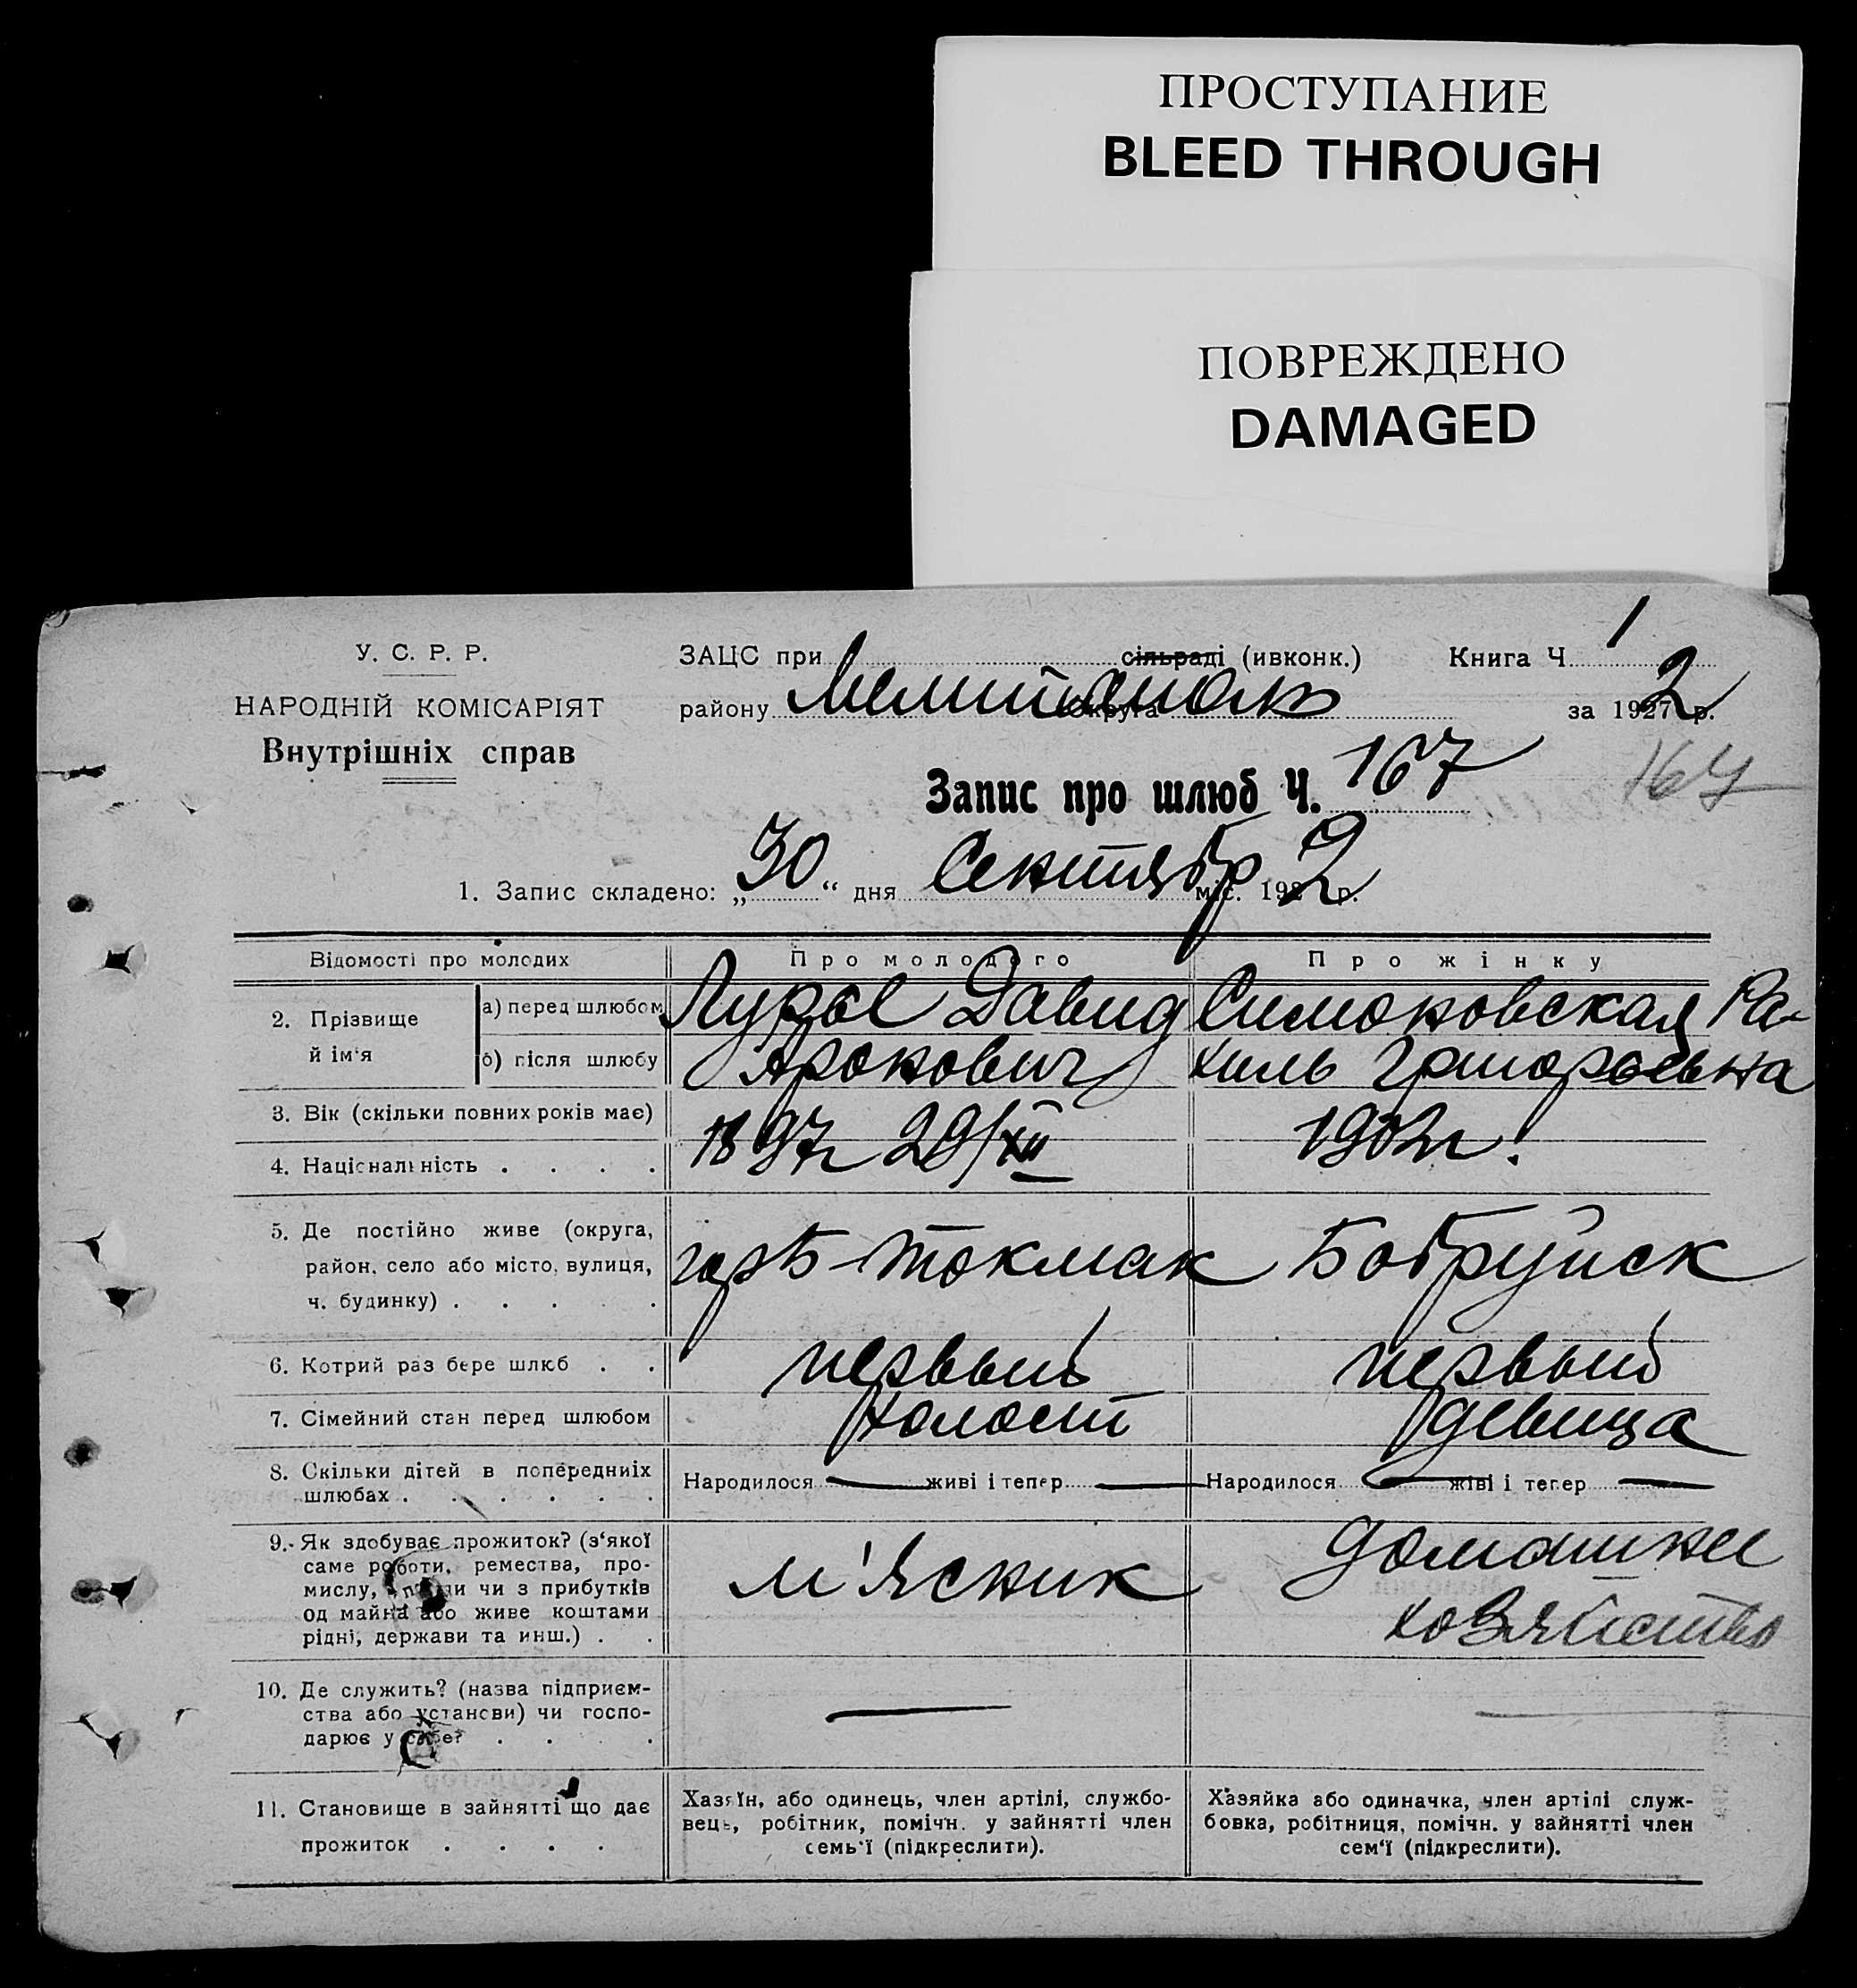 ПРОСТУПАНИЕ
BLEED THROUGH
ПОВРЕЖДЕНО
DAMAGED
У. С. Р. Р.
НАРОДНІЙ КОМІСАРІЯТ
Внутрішніх справ
ЗАЦС при сільраді (ивконк.) Книга Ч 1
району округа за 1927 2 р.
Запис про шлюб Ч. 167
167
1. Запис складено: „30“ дня Сентябр міс. 192 2 р.
Відомості про молодих
Про молодого
Про жінку
2. Прізвище й ім‘я
а) перед шлюбом
б) після шлюбу
Лурье Давид
Аронович
Симоновская Ра-
хиль Григорьевна
3. Вік (скільки повних років має)
4. Національність . . . .
1897 г 29/XII
1902 г.
5. Де постійно живе (округа,
район, село або місто, вулиця,
ч. будинку) . . . . .
гор Б-Токмак
Бобруйск
6. Котрий раз бере шлюб . .
первый
первый
7. Сімейний стан перед шлюбом
холост
девица
8. Скільки дітей в попередніх
шлюбах . . . . . .
Народилося живі і тепер
Народилося живі і тепер
9. Як здобуває прожиток? (з‘якої
саме роботи, ремества, про-
мислу, чи з прибутків
од майна або живе коштами
рідні, держави та инш.) . .
м'ясник
домашнее
хозяйство
10. Де служить? (назва підприєм-
ства або установи) чи госпо-
дарює у себе? . . .
11. Становище в зайнятті що дає
прожиток . . . .
Хазяїн, або одинець, член артілі, службо-
вець, робітник, помічн. у зайнятті член
семь‘ї (підкреслити).
Хазяйка або одиначка, член артілі служ-
бовка, робітниця, помічн. у зайнятті член
сем‘ї (підкреслити).